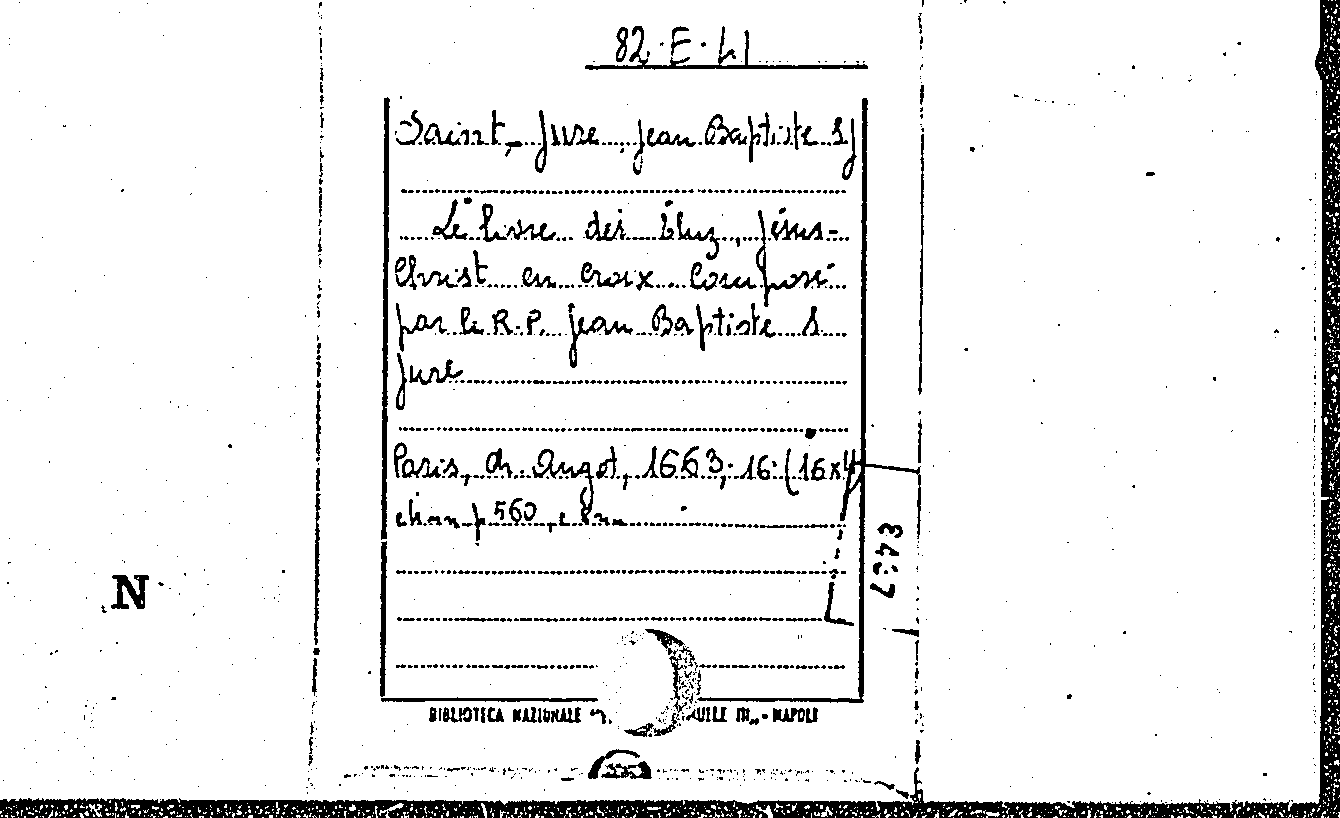 82.E.41
Saint-Jure, Jean Baptiste SJ
Le livre des Éluz, Jésus-
Christ en croix. Composé
par le R.P. Jean Baptiste S
Jure
Paris, ch. Angot, 1663; 16° (16x
p 560,
3437
N
BIBLIOTECA NAZIONALE UELE III„ - NAPOLI